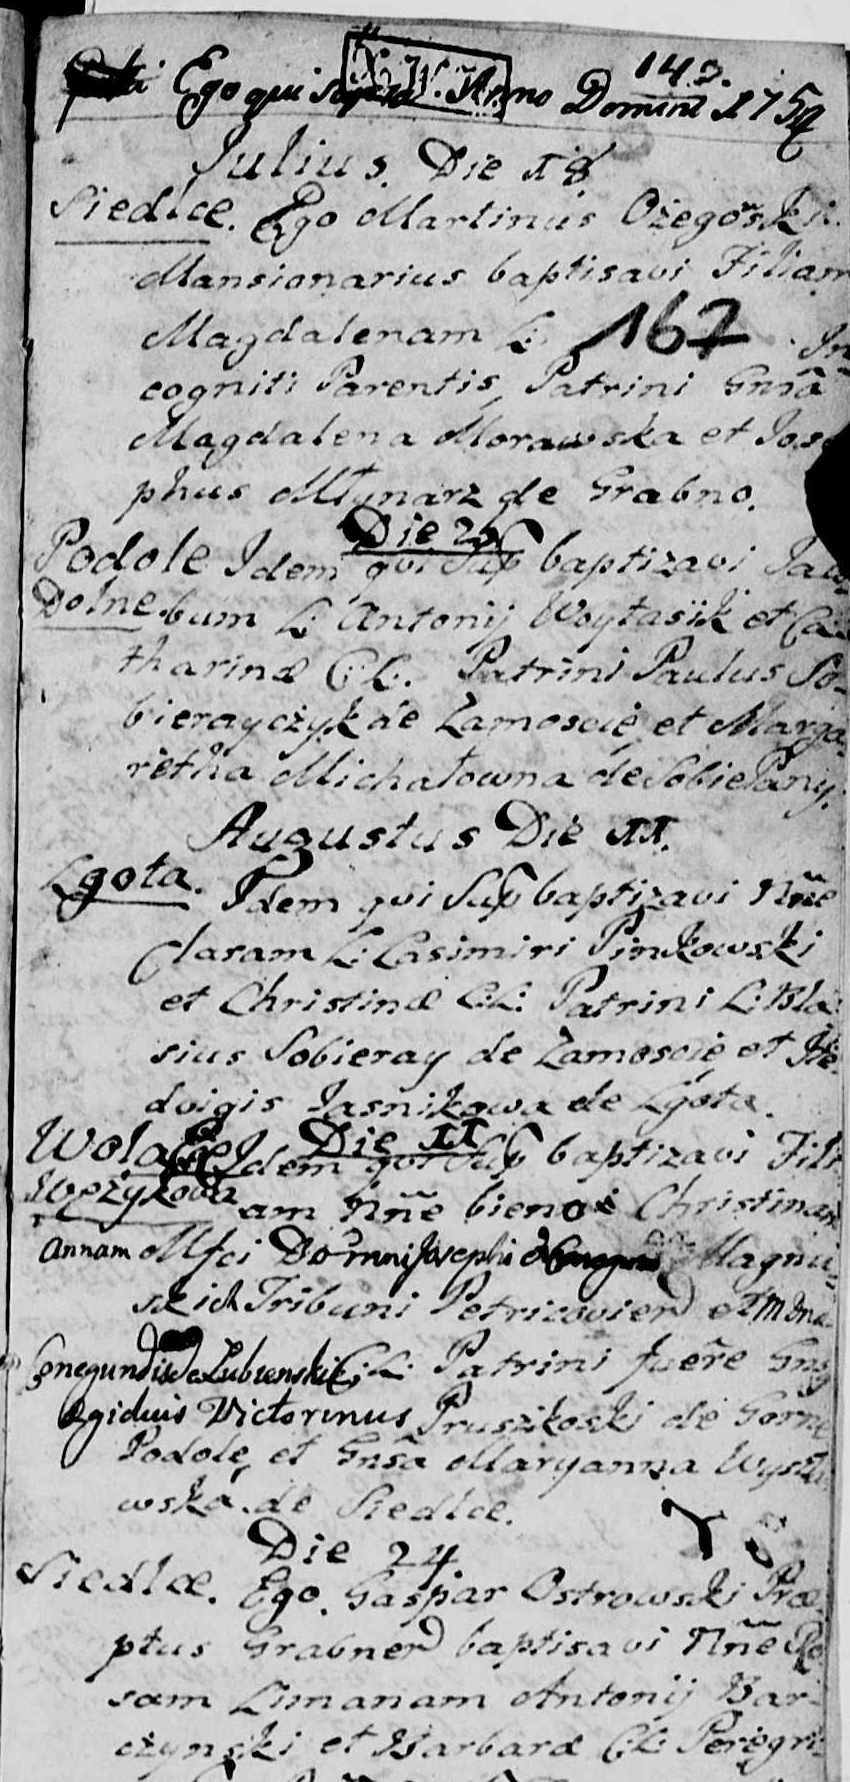 143.
Ego qui supra Anno Domini 1754
Julius. Die 18.
Siedlce. Ego Martinus Ożegoski
Mansionarius baptisavi Filiam
Magdalenam L: 167 In
cogniti Parentis, Patrini Gnsa
Magdalena Morawska et Jose
phus Młynarz de Grabno.
Die 20
Podole Idem qvi Sup baptizavi Jaco
Dolne bum L: Antonij Woytasik et Ca
tharinæ C:L. Patrini Paulus So-
bierayczyk de Zamoscie et Marga-
retha Michałowna de Sobiepany.
Augustus Die 11.
Lgota. Idem qvi Sup baptizavi Nñe
Claram L: Casimiri Pinkowski
et Christinæ C:L: Patrini L: Bla
sius Sobieray de Zamoscie et He
dvigis Jasnikowa de Lgota.
Die 11
Wola Idem qvi Sup baptizavi Fili
Wężykowa am Nñe bieno Christinam
Annam Mfci Domini Josephi Magnu-
skich Tribuni Petricovien et M Dna
Cunegundis de Lubienskie C:L: Patrini fuere Gnsg
Egidius Victorinus Pruszkoski de Gorne
Podole, et Gnsa Maryanna Wyst
wska de Siedlce.
Die 24.
Siedlce. Ego Gaspar Ostrowski Præ
ptus Grabnen baptisavi Nñe Ro
sam Limanam Antonij Bar
czynski et Barbaræ C:L: Peregri